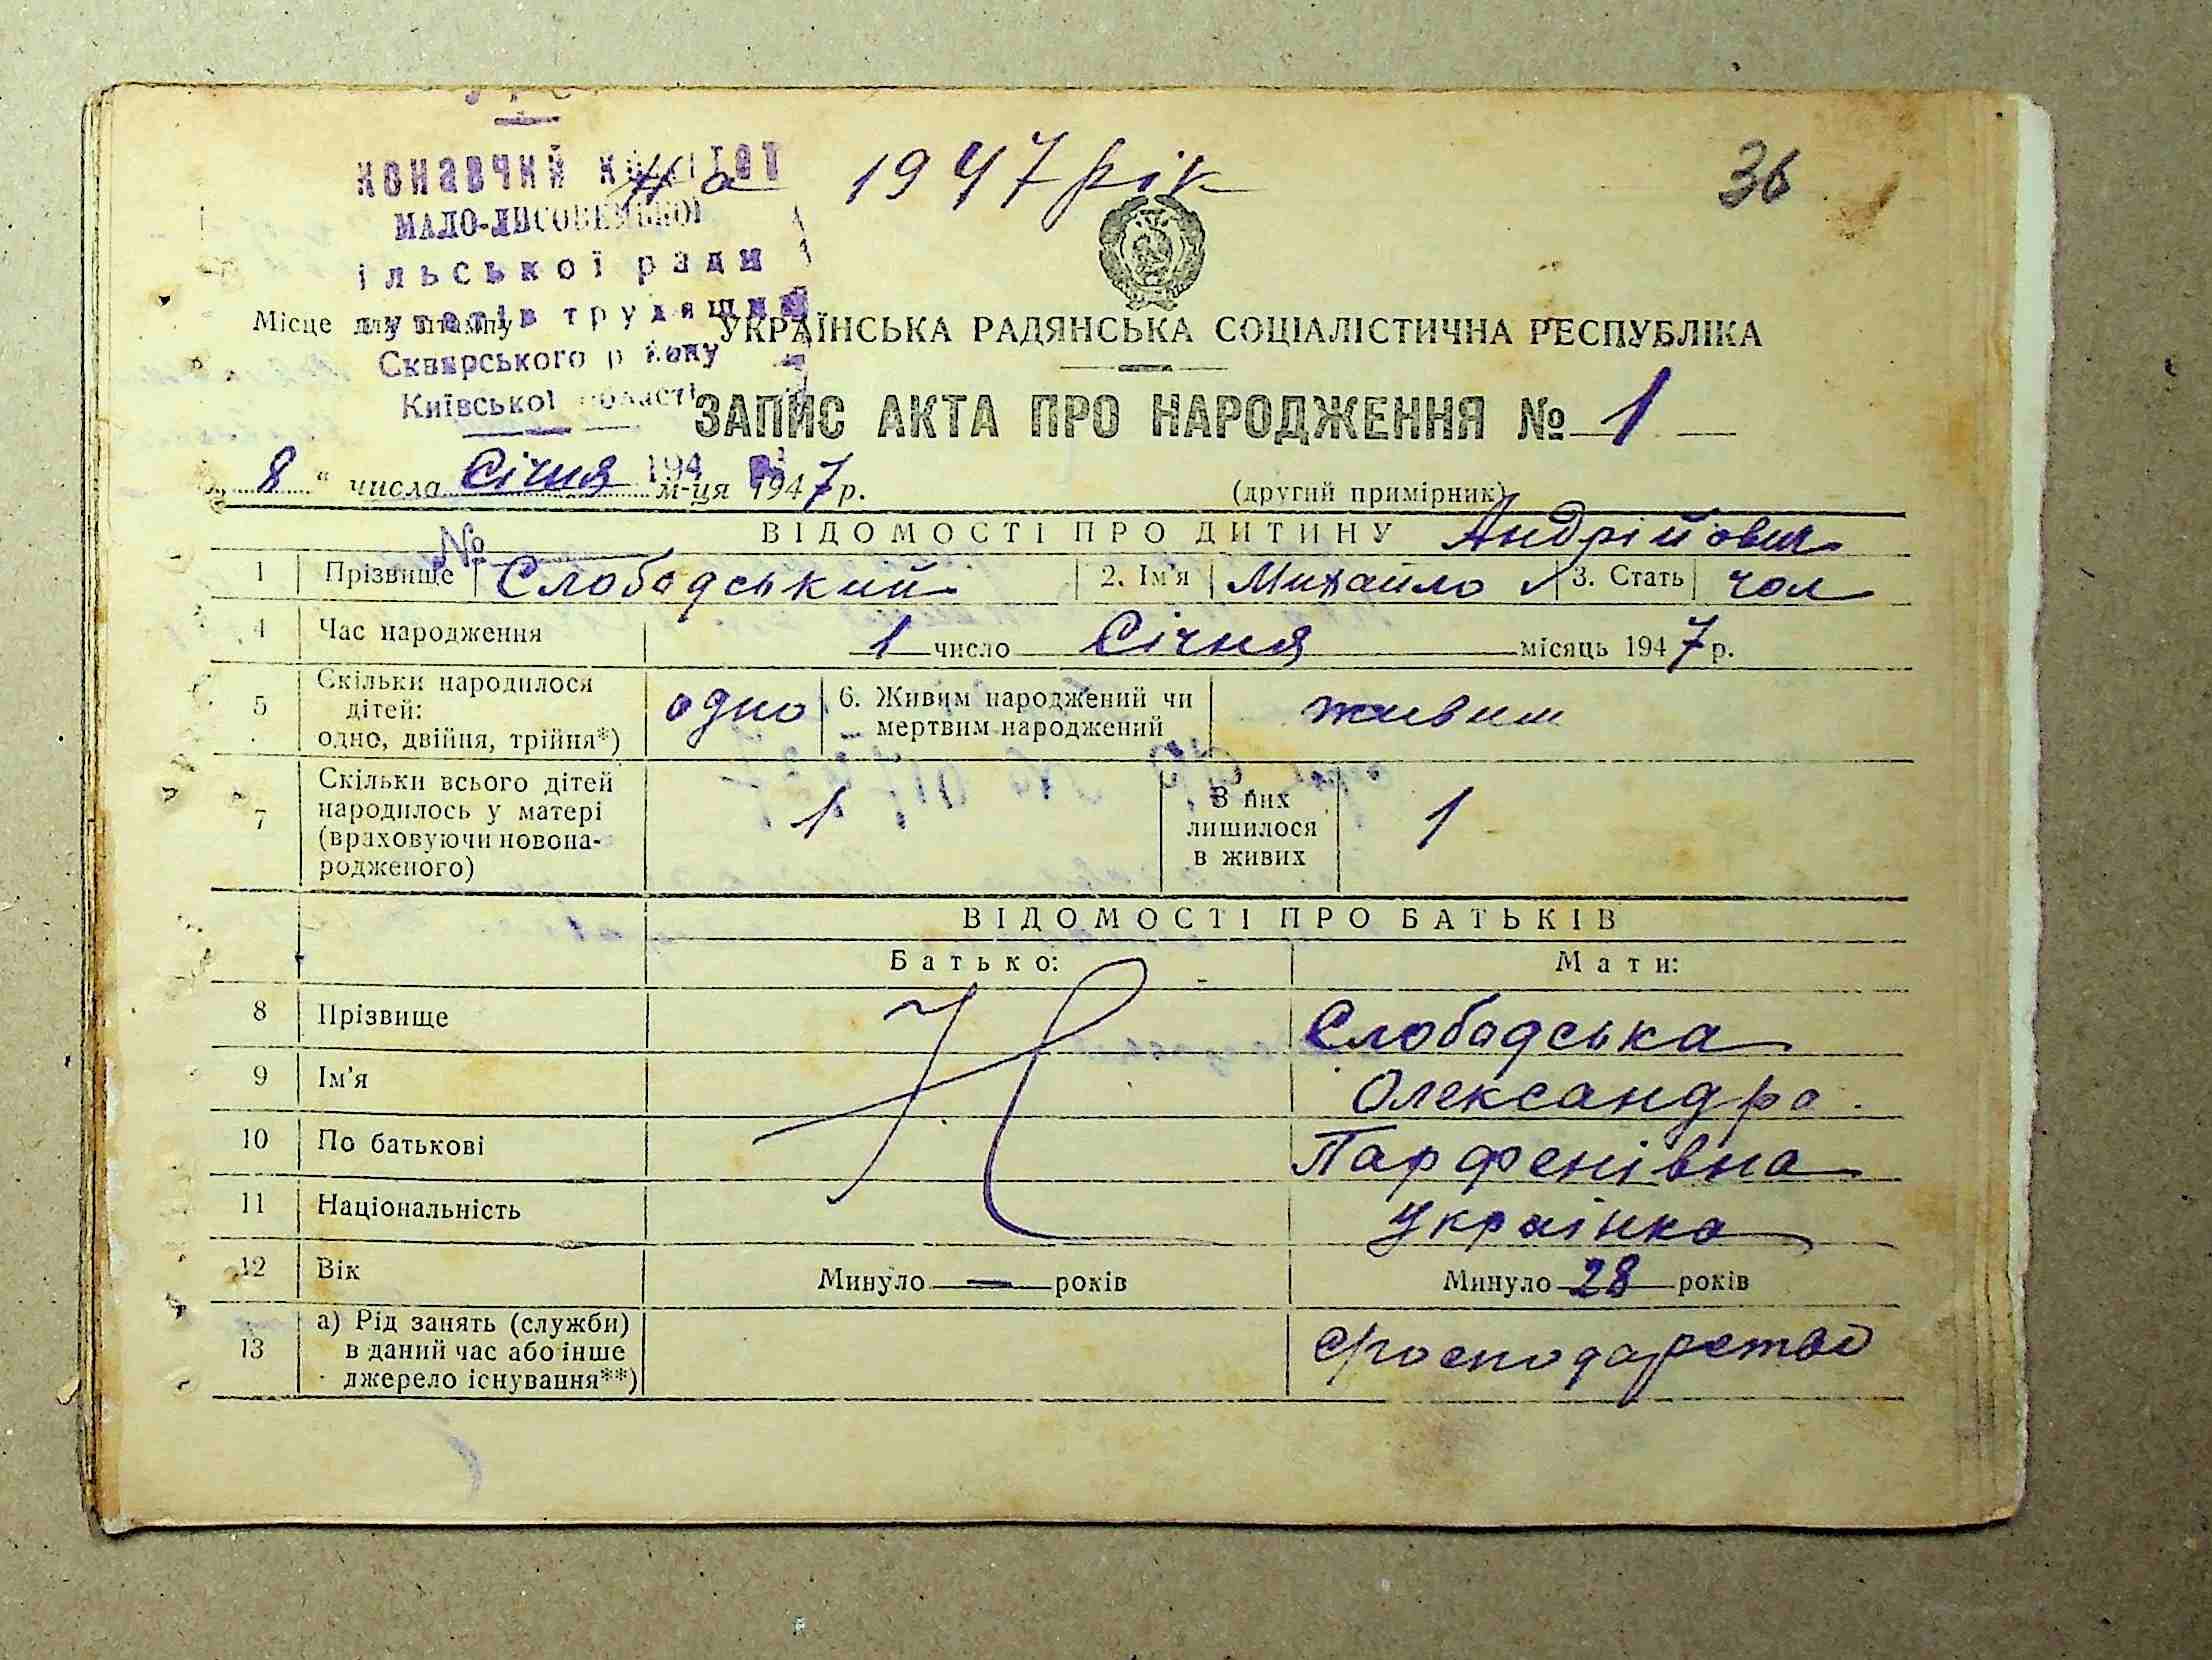 УРСР
конавчий комітет
на 1947 рік
36
МАЛО-ЛИСОВЕЦЬКОЇ
ільської ради
Місце для штампу
путатів трудящих
УКРАЇНСЬКА РАДЯНСЬКА СОЦІАЛІСТИЧНА РЕСПУБЛІКА
Сквирського району
Київської області
ЗАПИС АКТА ПРО НАРОДЖЕННЯ № 1
194 р.
„8“ числа Січня м-ця 1947 р.
(другий примірник)
№
ВІДОМОСТІ ПРО ДИТИНУ Андрійович
1 Прізвище Слободський 2. Ім'я Михайло 3. Стать чол
4 Час народження 1 число Січня місяць 1947 р.
5 Скільки народилося дітей: одно, двійня, трійня*) одно 6. Живим народжений чи мертвим народжений живим
7 Скільки всього дітей народилось у матері (враховуючи новонародженого) 1 З них лишилося в живих 1
ВІДОМОСТІ ПРО БАТЬКІВ
Батько: Мати:
8 Прізвище Слободська
9 Ім'я Олександра
10 По батькові Парфенівна
11 Національність Українка
12 Вік Минуло — років Минуло 28 років
13 а) Рід занять (служби) в даний час або інше джерело існування**) господарство